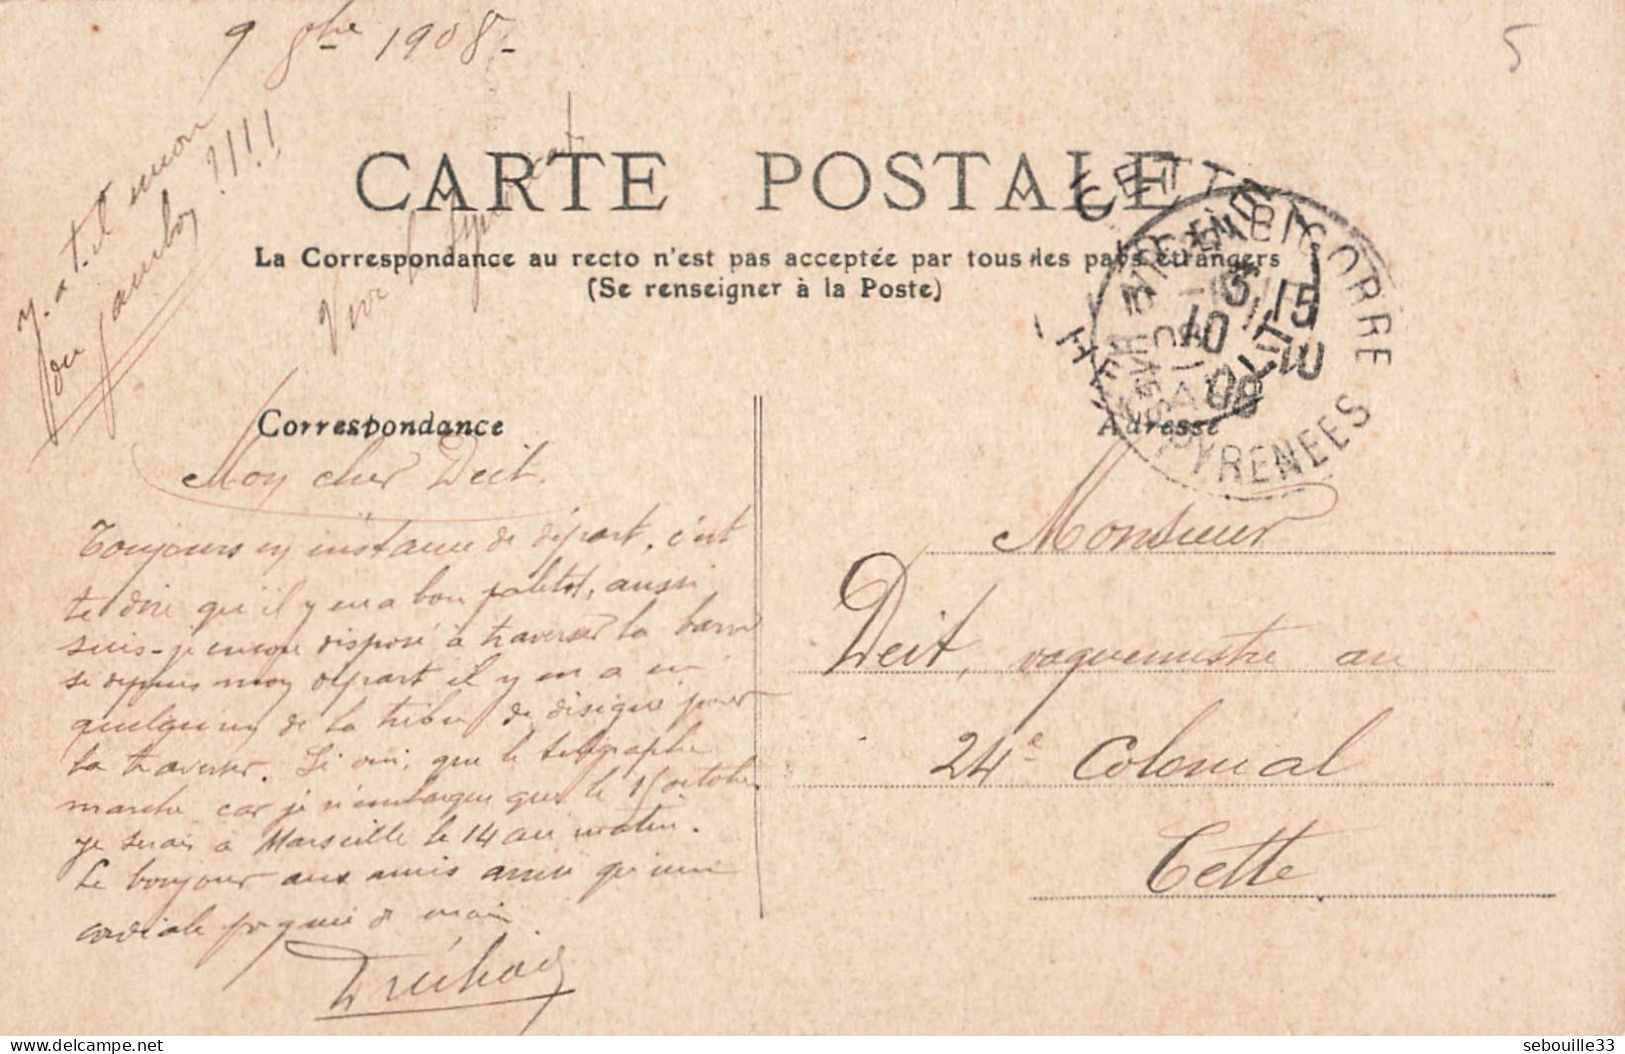 9 8bre 1908-
5
Y-a-t-il mon
ou jambon ?!!!!
Vive le
CARTE POSTALE
La Correspondance au recto n'est pas acceptée par tous les pays étrangers
(Se renseigner à la Poste)
CETTE
HÉRAULT
BIGORRE
PYRENEES
3 15
10 10
08
Correspondance
Adresse
Mon cher Deit.
Toujours en instance de départ, c'est
te dire qu'il y en a bon paletot, aussi
suis-je encore disposé à traverser la barre
si depuis mon départ il y en a eu
quelqu'un de la tribu de désigné pour
la traverser. Si oui, que le télégraphe
marche car je n'embarque que le 15 octobre
je serai à Marseille le 14 au matin.
Le bonjour aux amis ainsi qu'une
cordiale poignée de main
Monsieur
Deit, vaguemestre au
24e Colonial
Cette
sebouille33